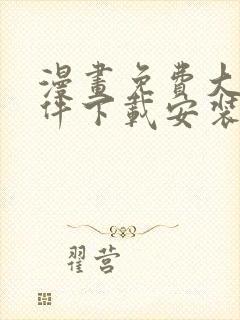 漫畫免費大
件下載安裝
翟营